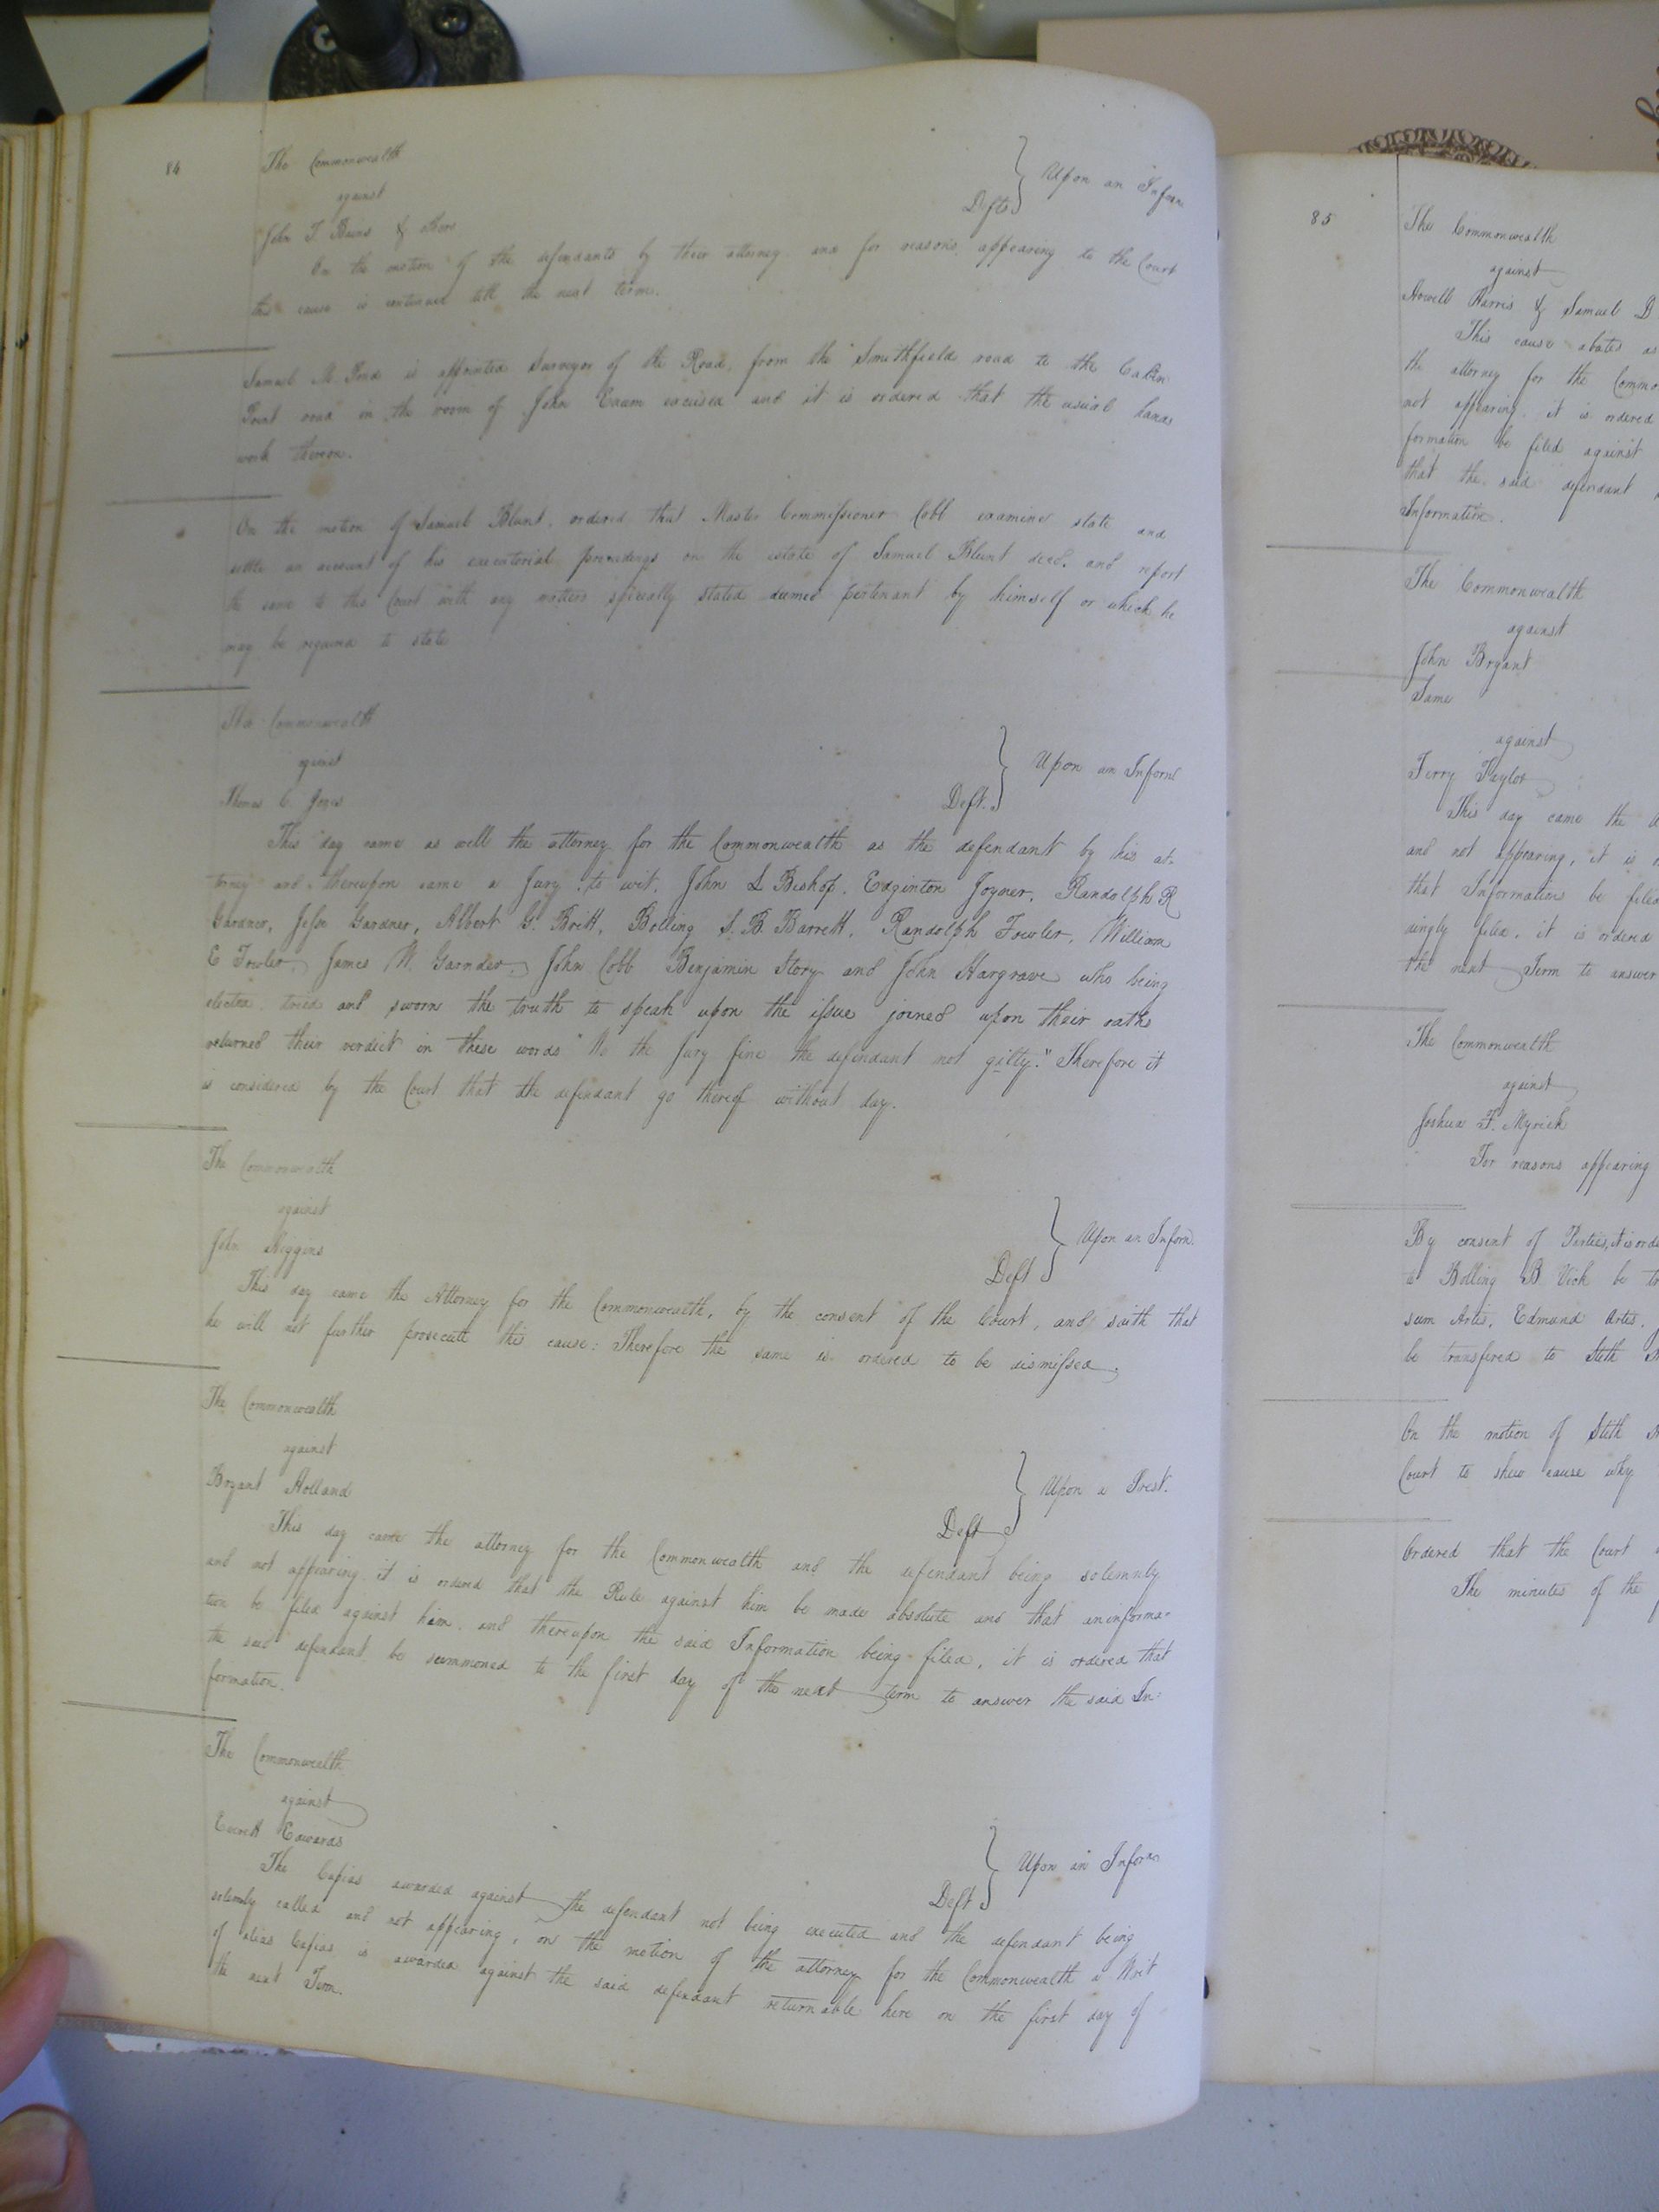 84
The Commonwealth
against
John T. & others Defts } Upon an Inform
On the motion of the defendants by their attorney and for reasons appearing to the Court
this cause is continued till the next term.
Samuel M. is appointed Surveyor of the Road, from the Smithfield road to the Cabin
Point road in the room of John excused and it is ordered that the usual hands
work thereon.
On the motion of Samuel Blunt, ordered that Master Commissioner Cobb examine state and
settle an account of his executorial proceedings on the estate of Samuel Blunt decd. and report
the same to the Court with any matters specially stated deemed pertenant by himself or which he
may be required to state
The Commonwealth
against
Thomas C. Jones Deft. } Upon an Inform
This day came as well the attorney for the Commonwealth as the defendant by his at-
torney and thereupon came a Jury, to wit, John L Bishop, Edginton Joyner, Randolph R
Gardner, Jesse Gardner, Albert G. Britt, Bolling S. B. Barrett, Randolph Fowler, William
E Fowler, James W. John Cobb Benjamin Story and John Hargrave who being
elected tried and sworn the truth to speak upon the issue joined upon their oaths
returned their verdict in these words "We the Jury fine the defendant not gilty." Therefore it
is considered by the Court that the defendant go thereof without day.
The Commonwealth
against
John Deft } Upon an Inform.
This day came the Attorney for the Commonwealth, by the consent of the Court, and saith that
he will not further prosecute this cause: Therefore the same is ordered to be dismissed.
The Commonwealth
against
Bryant Holland Deft } Upon a Prest.
This day came the attorney for the Commonwealth and the defendant being solemnly
and not appearing it is ordered that the Rule against him be made absolute and that an informa-
tion be filed against him, and thereupon the said Information being filed, it is ordered that
the said defendant be summoned to the first day of the next term to answer the said In-
formation.
The Commonwealth
against
Everett Edwards Deft } Upon an Inform
The Capias awarded against the defendant not being executed and the defendant being
solemnly called and not appearing, on the motion of the attorney for the Commonwealth a Writ
of alias Capias is awarded against the said defendant returnable here on the first day of
the next Term.
85
The Commonwealth
against
Howell Harris & Samuel D
This cause abates as
the attorney for the Commo
not appearing, it is ordered
formation be filed against
that the said defendant
Information.
The Commonwealth
against
John Bryant
Same
against
Taylor
This day came the
and not appearing, it is
that Information be filed
dingly filed, it is ordered
the next Term to answer
The Commonwealth
against
Joshua F. Myrick
For reasons appearing
By consent of Parties, it is orde
to Bolling B. Vick be
Artis, Edmund Artis,
be transfered to Stith
On the motion of Stith
Court to shew cause why
Ordered that the Court
The minutes of the